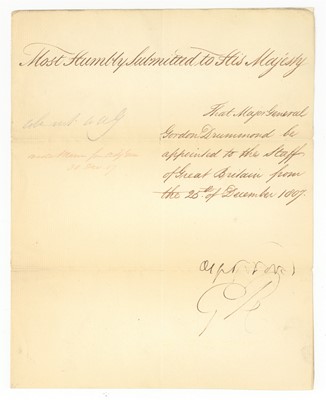 Most Humbly Submitted to His Majesty
That Major General
Gordon Drummond be
appointed to the Staff
of Great Britain from
the 25th of December 1807.
G R